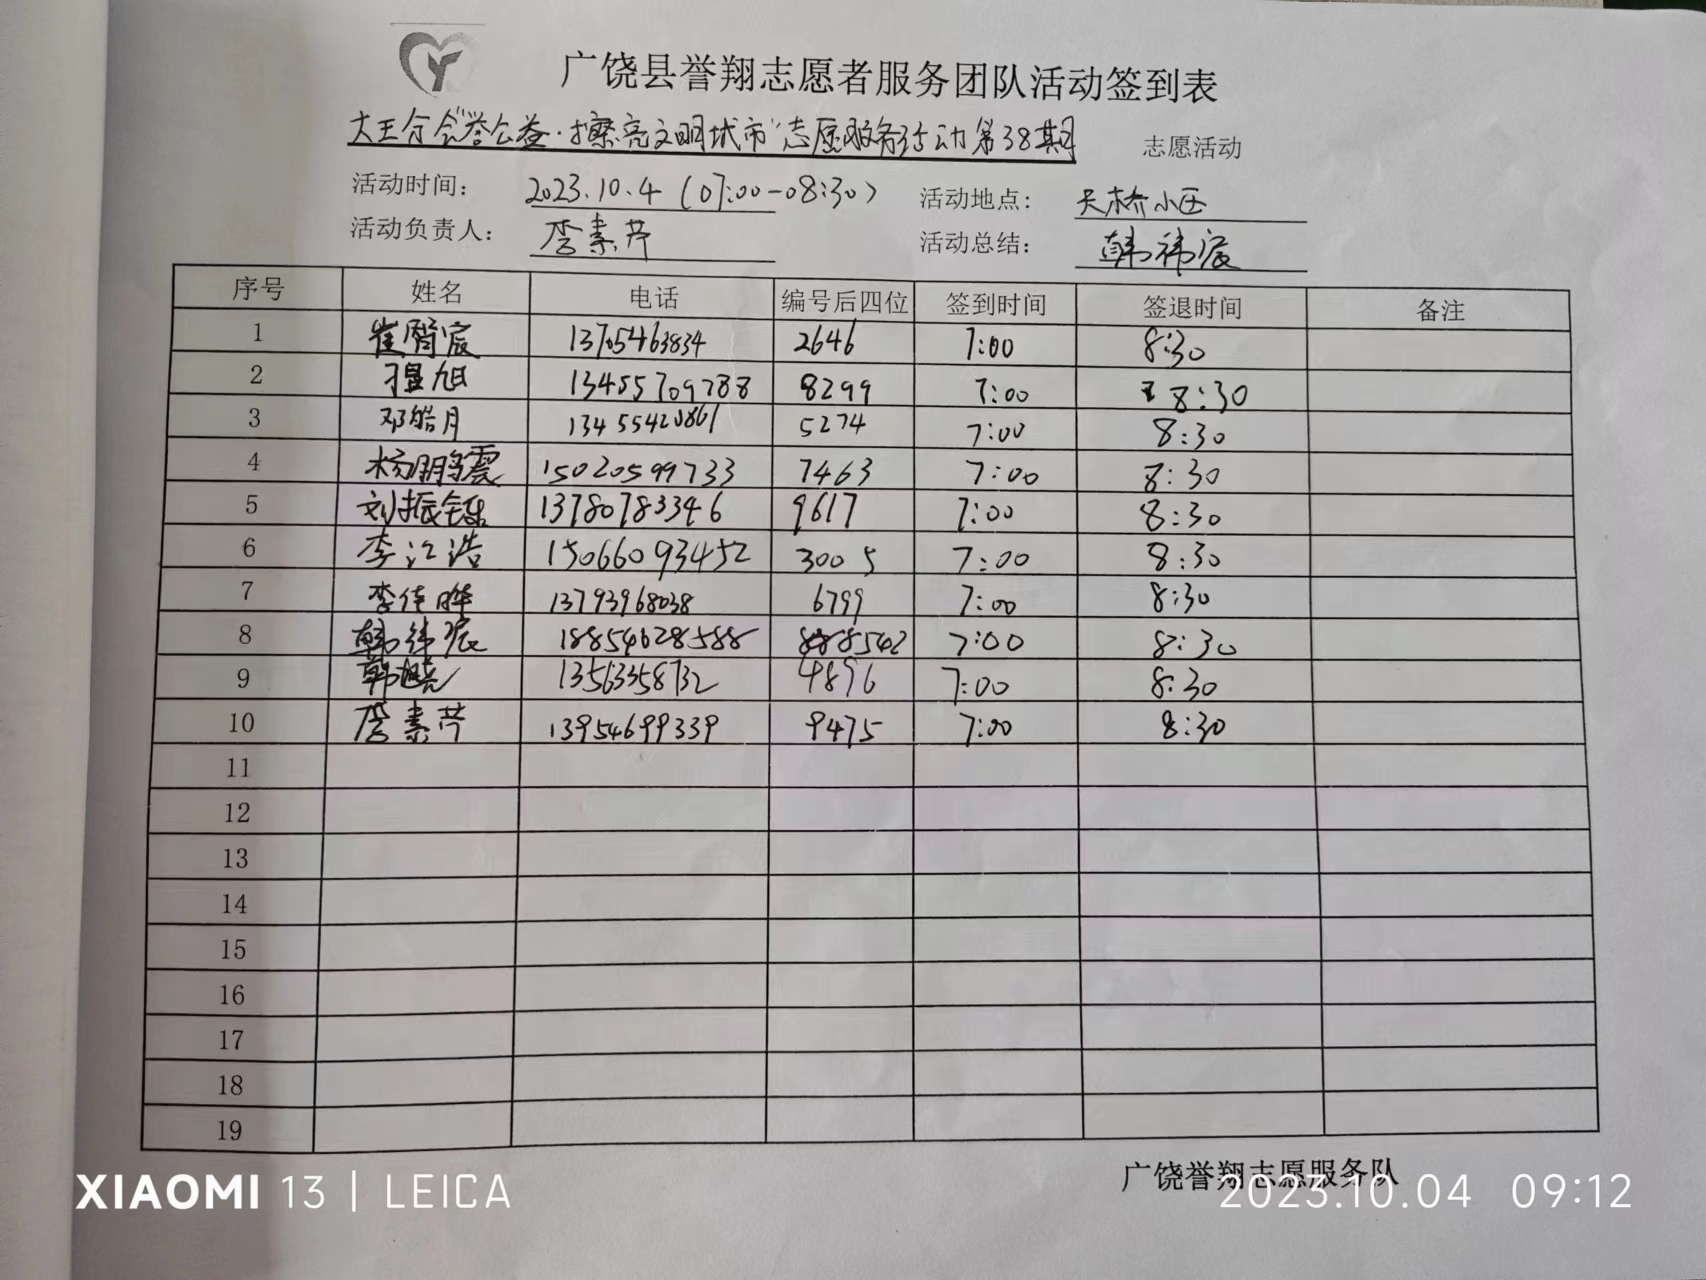 广饶县誉翔志愿者服务团队活动签到表
大王分会"誉公益·擦亮文明城市"志愿服务活动第38期 志愿活动
活动时间: 2023.10.4 (07:00-08:30) 活动地点: 天桥小区
活动负责人: 李素芹 活动总结: 韩祎宸
序号 姓名 电话 编号后四位 签到时间 签退时间 备注
1 崔 宸 13705463834 2646 7:00 8:30
2 旭 13455709788 8299 7:00 8:30
3 邓皓月 13455420861 5274 7:00 8:30
4 杨鹏震 15020599733 7463 7:00 8:30
5 刘振铄 13780783346 9617 7:00 8:30
6 李江浩 15066093452 3005 7:00 8:30
7 李佳晔 13793968038 6799 7:00 8:30
8 韩祎宸 18854628588 8542 7:00 8:30
9 韩晓亮 13563358732 4896 7:00 8:30
10 李素芹 13954699339 9475 7:00 8:30
11
12
13
14
15
16
17
18
19
广饶誉翔志愿服务队
XIAOMI 13 | LEICA 2023.10.04 09:12